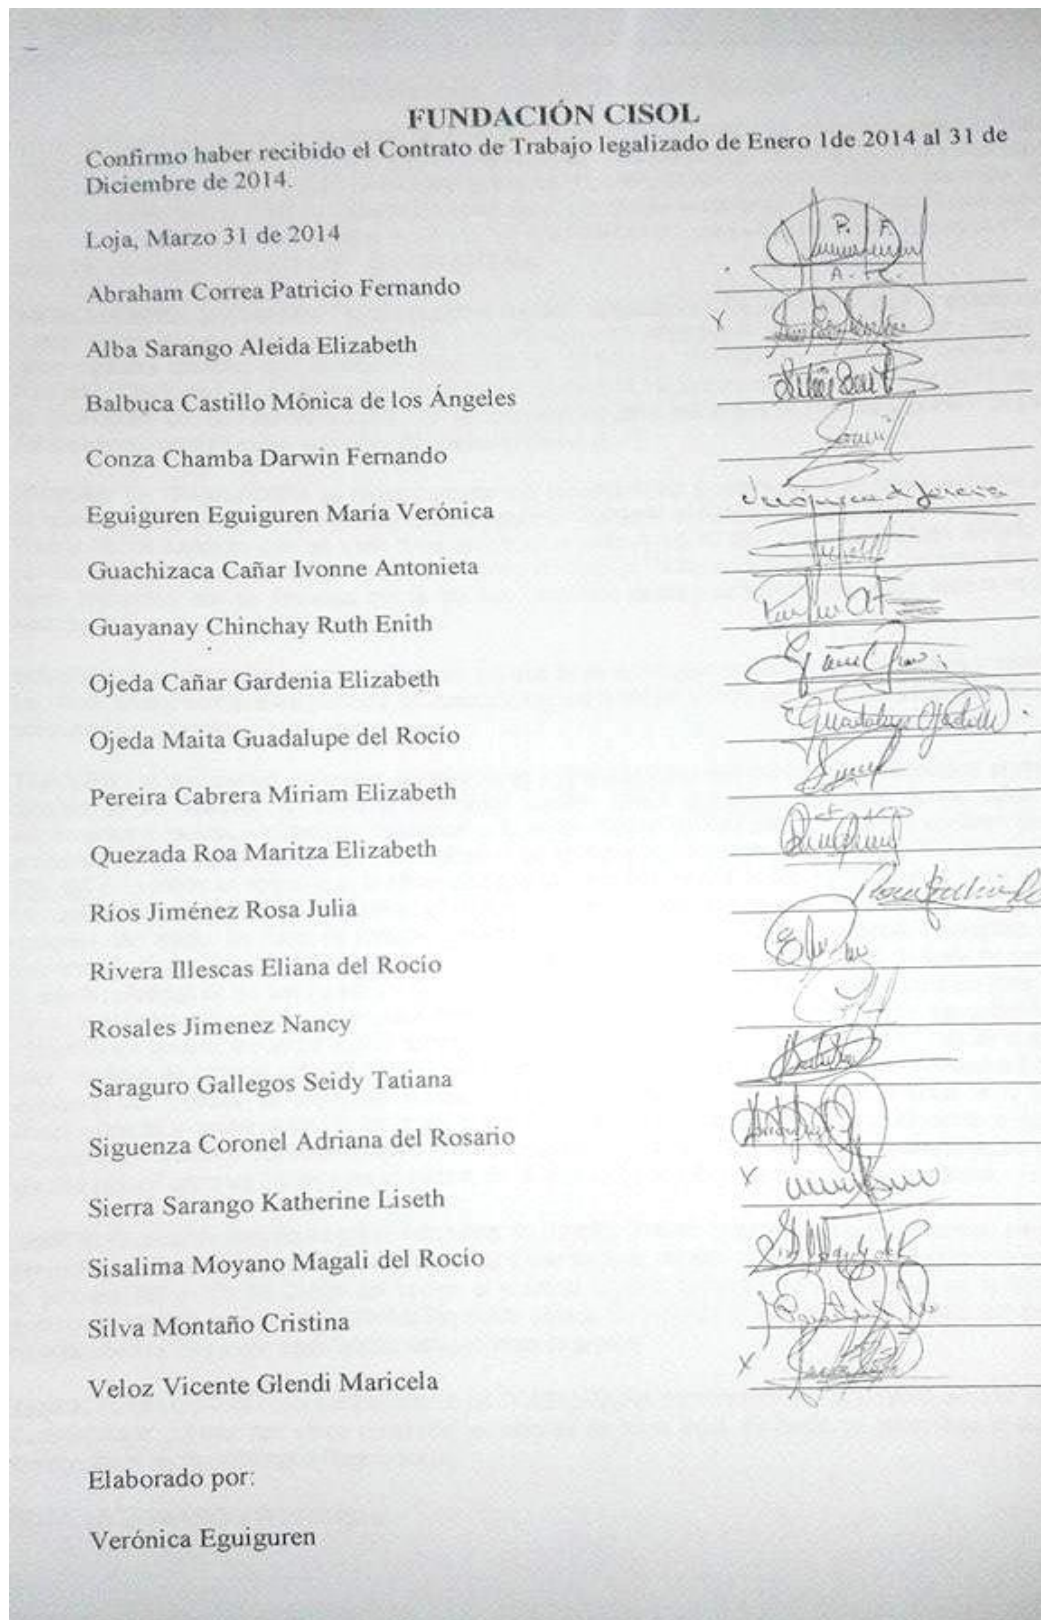 FUNDACIÓN CISOL
Confirmo haber recibido el Contrato de Trabajo legalizado de Enero 1de 2014 al 31 de
Diciembre de 2014.
Loja, Marzo 31 de 2014
P. F.
A. C.
Abraham Correa Patricio Fernando
X
Alba Sarango Aleida Elizabeth
Balbuca Castillo Mónica de los Ángeles
Conza Chamba Darwin Fernando
Eguiguren Eguiguren María Verónica
Guachizaca Cañar Ivonne Antonieta
Guayanay Chinchay Ruth Enith
Ojeda Cañar Gardenia Elizabeth
Ojeda Maita Guadalupe del Rocío Guadalupe
Pereira Cabrera Miriam Elizabeth
Quezada Roa Maritza Elizabeth
Ríos Jiménez Rosa Julia
Rivera Illescas Eliana del Rocío
Rosales Jimenez Nancy
Saraguro Gallegos Seidy Tatiana
Siguenza Coronel Adriana del Rosario
Sierra Sarango Katherine Liseth X
Sisalima Moyano Magali del Rocío
Silva Montaño Cristina
Veloz Vicente Glendi Maricela X
Elaborado por:
Verónica Eguiguren